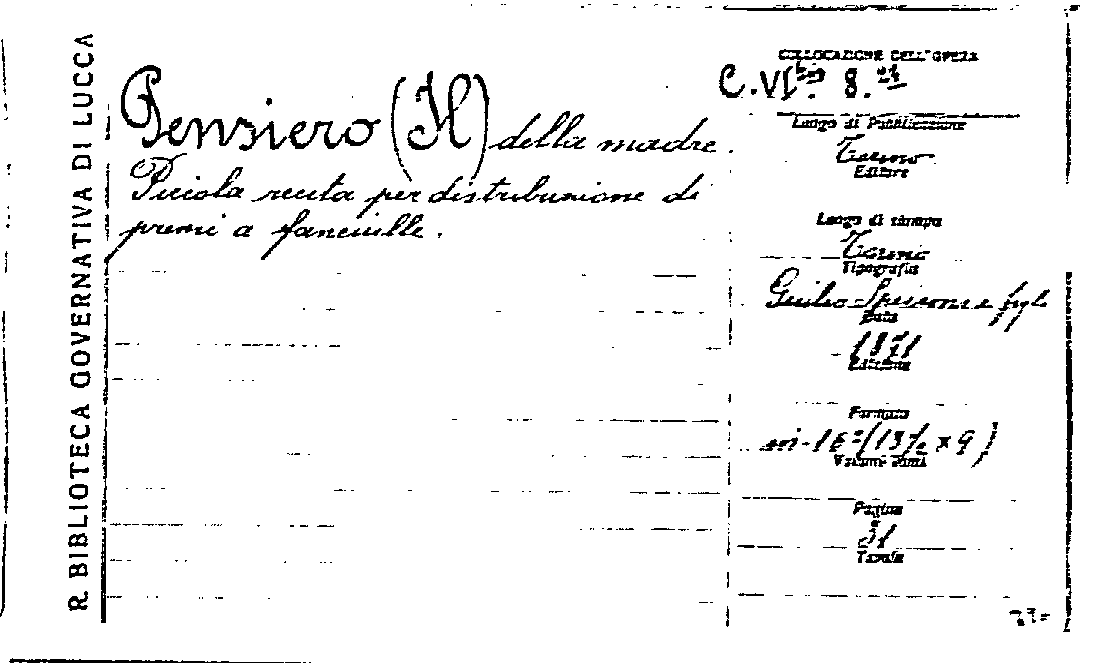 R. BIBLIOTECA GOVERNATIVA DI LUCCA
Pensiero (Il) della madre.
Piciola recita per distribuzione di
premi a fanciulle.
COLLOCAZIONE DELL'OPERA
C.VI 8.
Luogo di Pubblicazione
Torino
Editore
Luogo di stampa
Torino
Tipografia
Giulio Speirani e figli
Data
1871
Edizione
Formato
in-16º (13½ x 9)
Volume
Pagine
31
Tavole